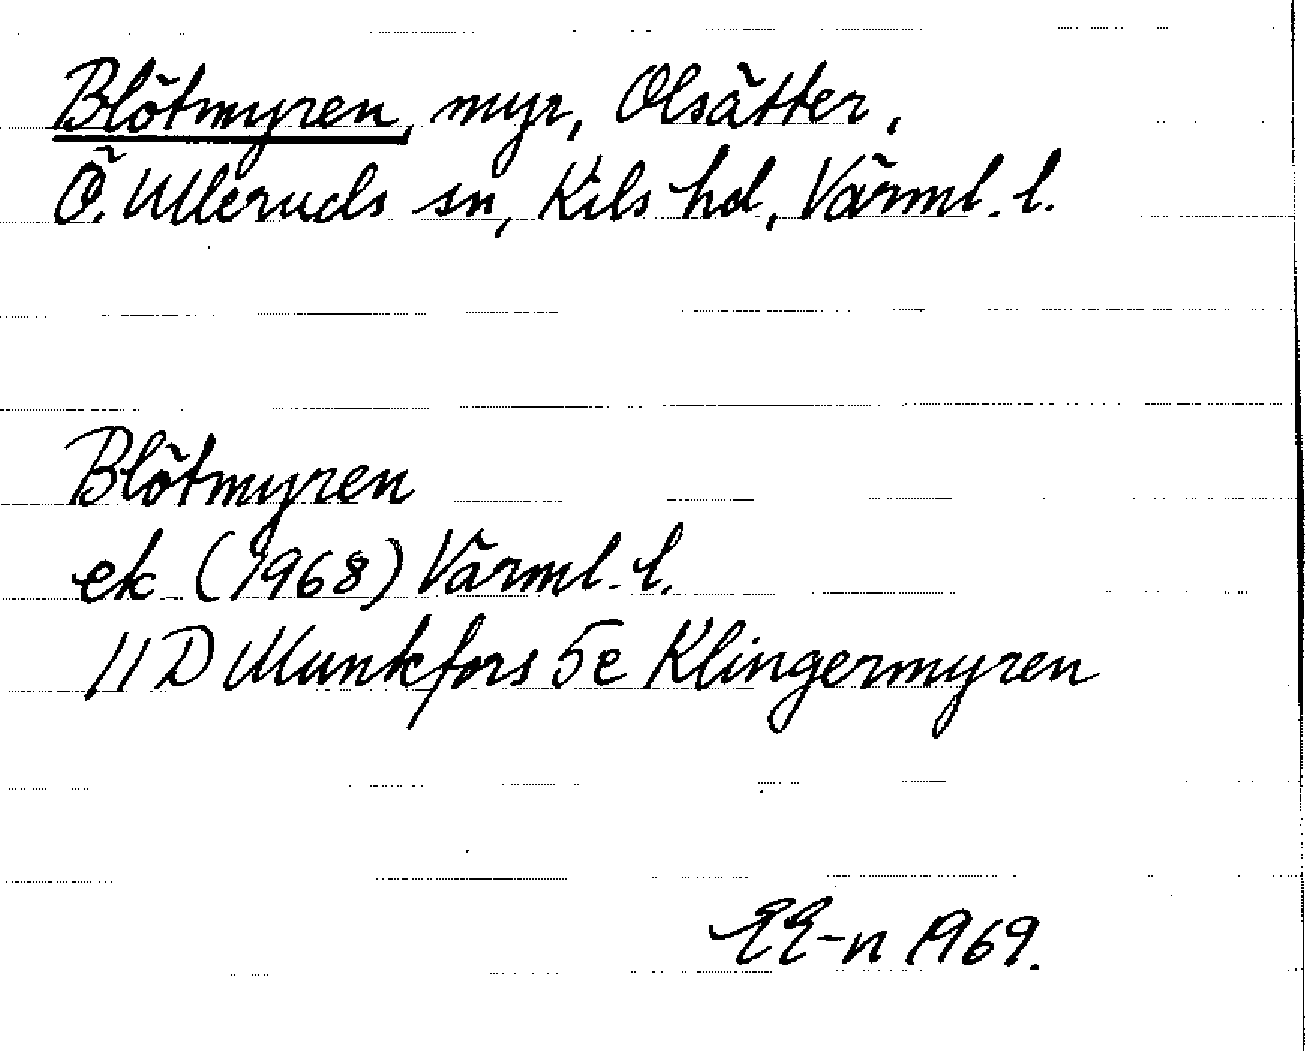 Blötmyren, myr, Olsätter,
Ö. Ulleruds sn, Kils hd, Värml. l.
Blötmyren
ek (1968) Värml. l.
11 D Munkfors 5e Klingermyren
EE-n 1969.